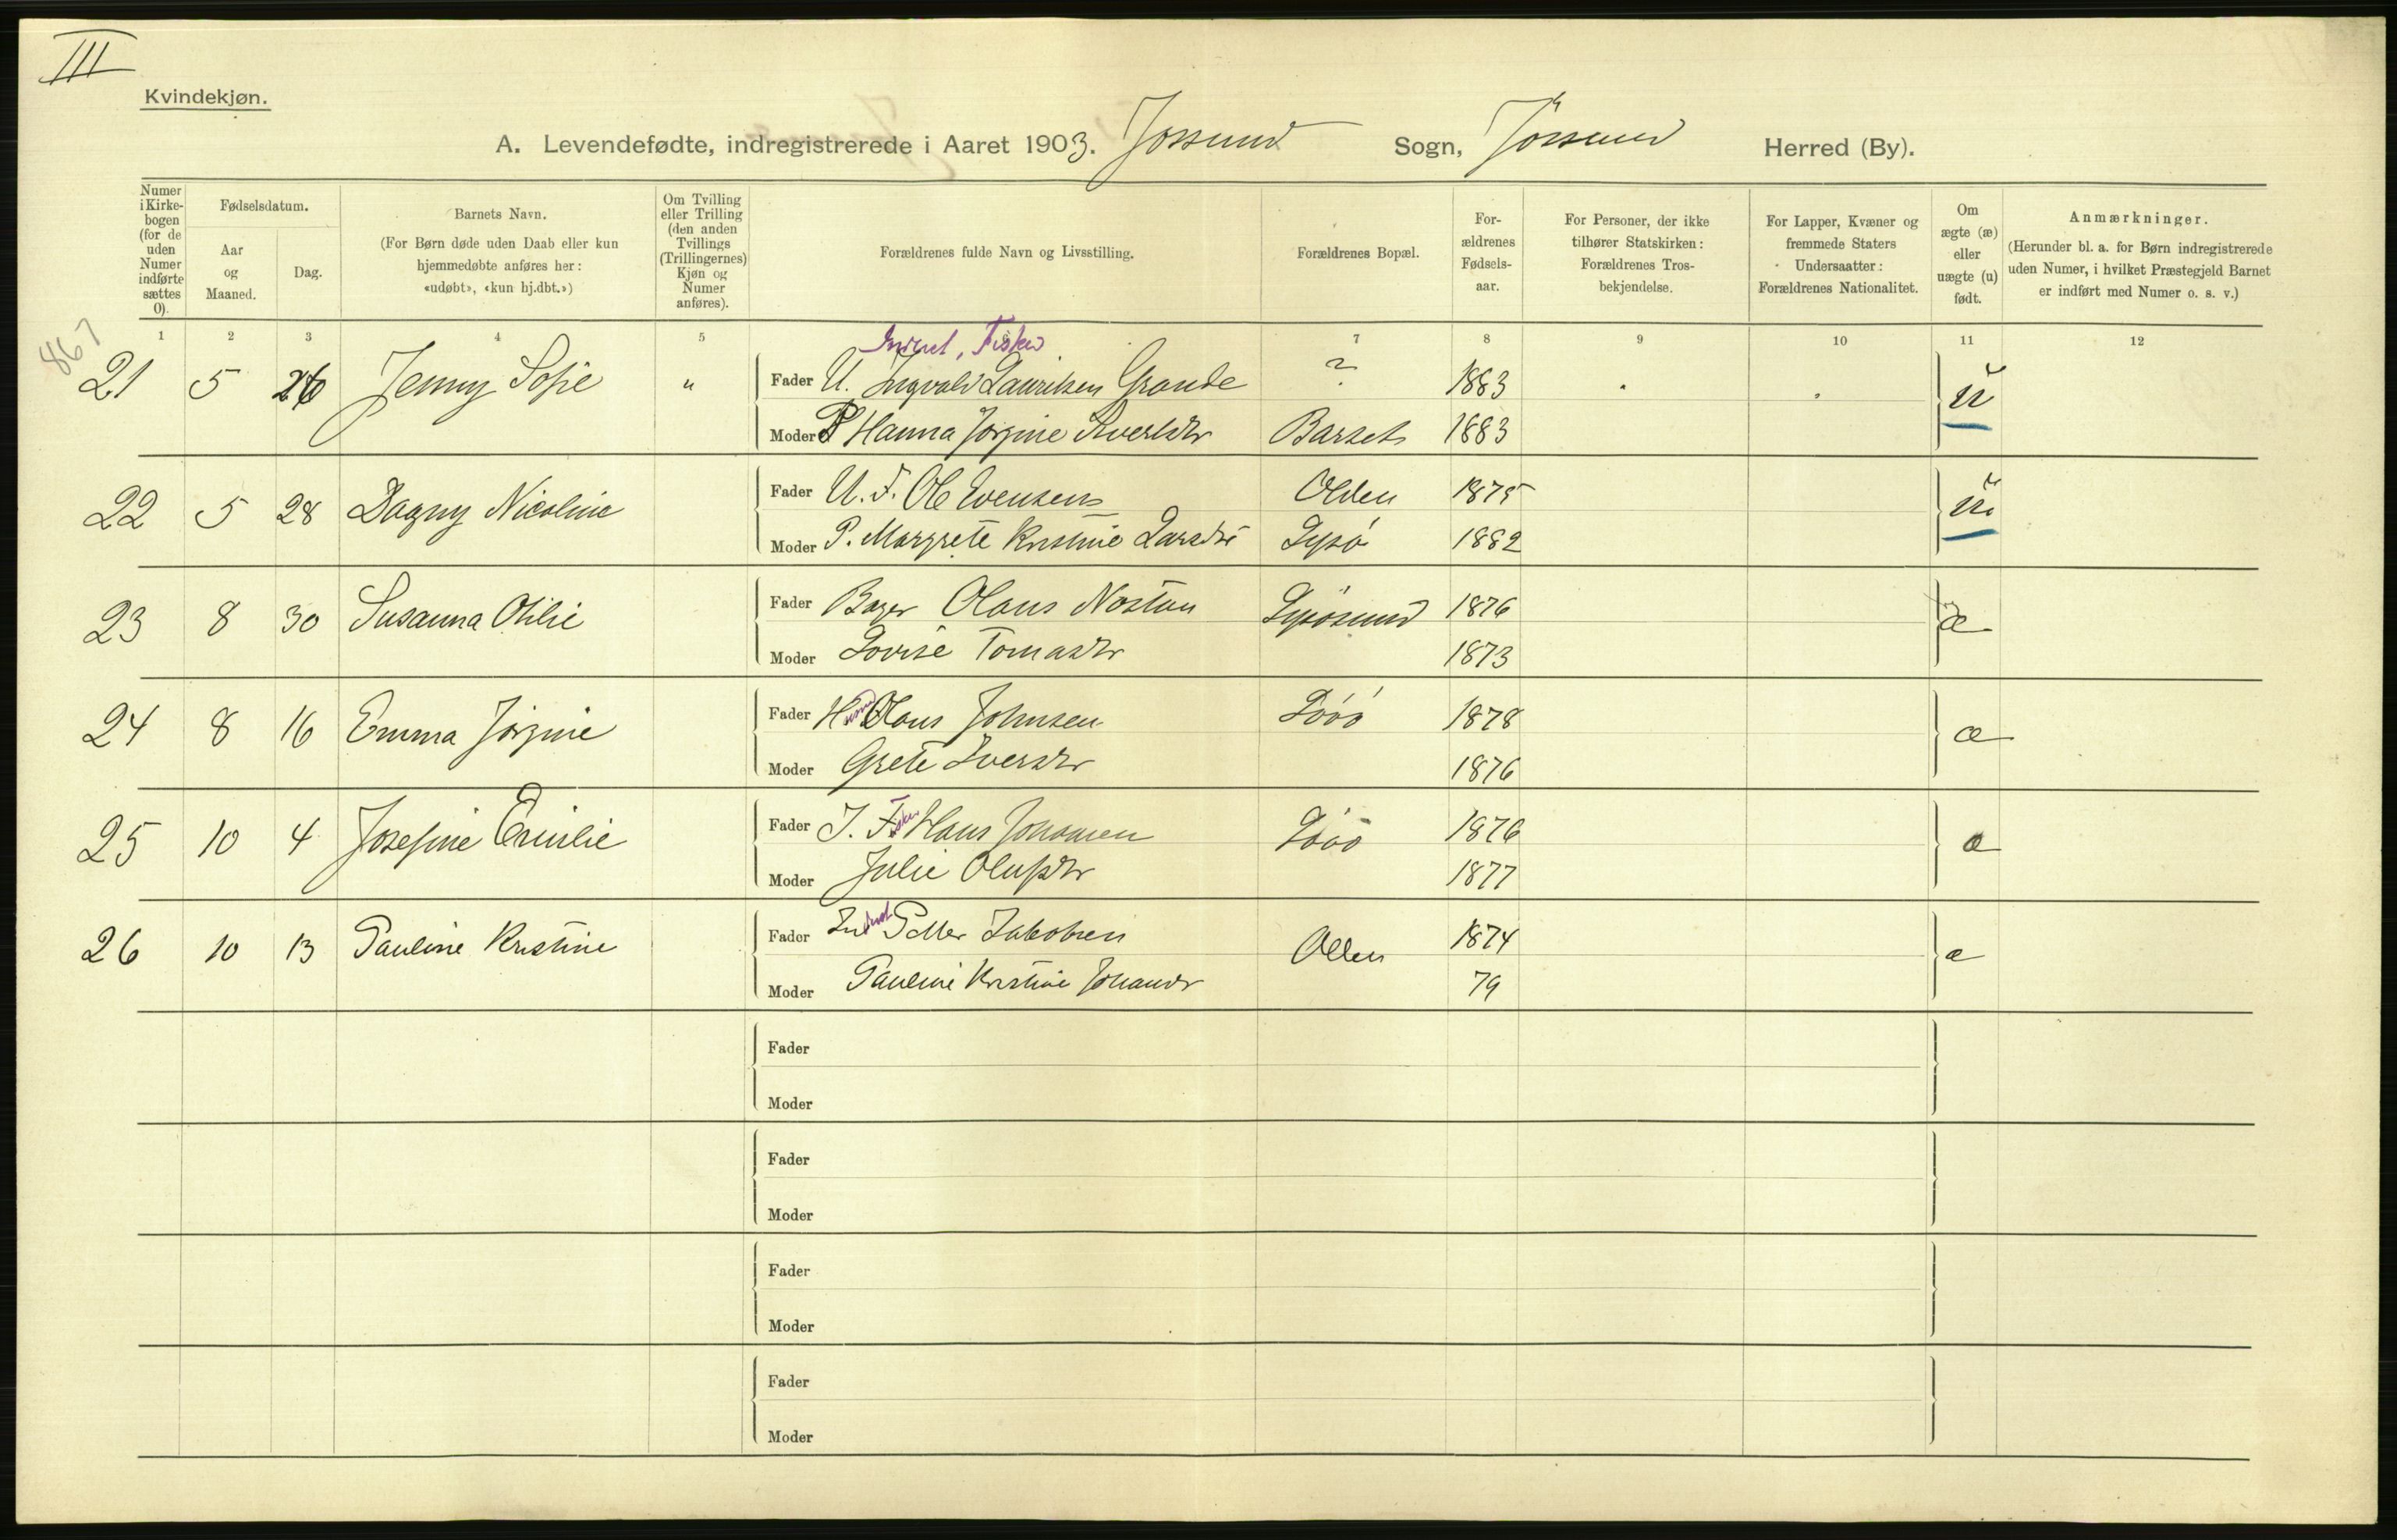 III
Kvindekjøn.
A. Levendefødte, indregistrerede i Aaret 1903. Jossund Sogn, Jössund Herred (By).
Numer i Kirke-bogen (for de uden Numer indførte sættes 0).
Fødselsdatum.
Aar og Maaned.
Dag.
Barnets Navn.
(For Børn døde uden Daab eller kun hjemmedøbte anføres her: «udøbt», «kun hj.dbt.»)
Om Tvilling eller Trilling (den anden Tvillings (Trillingernes) Kjøn og Numer anføres).
Forældrenes fulde Navn og Livsstilling.
Forældrenes Bopæl.
For-ældrenes Fødsels-aar.
For Personer, der ikke tilhører Statskirken: Forældrenes Tros-bekjendelse.
For Lapper, Kvæner og fremmede Staters Undersaatter: Forældrenes Nationalitet.
Om ægte (æ) eller uægte (u) født.
Anmærkninger.
(Herunder bl. a. for Børn indregistrerede uden Numer, i hvilket Præstegjeld Barnet er indført med Numer o. s. v.)
1 2 3 4 5 7 8 9 10 11 12
867
Fisker
21 5 26 Jenny Sofie " Fader U. Ingvald Lauritsen Grande ? 1883 ŭ
Moder P Hanna Jörgine Sivertsdtr Barset 1883
22 5 28 Dagny Nicoline Fader U. F. Ole Evensen Olden 1875 ŭ
Moder P. Margrete Kristine Larsdtr Lysö 1882
23 8 30 Susanna Otilie Fader Bager Olaus Nostan Lysösund 1876 æ
Moder Lovise Tomasdtr 1873
24 8 16 Emma Jörgine Fader Husm Olaus Johnsen Lóö 1878 æ
Moder Grete Iversdtr 1876
25 10 4 Josefine Emilie Fader I. Fisker Hans Johansen Lóö 1876 æ
Moder Julie Olufsdtr 1877
26 10 13 Pauline Kristine Fader Indrst Petter Jakobsen Olden 1874 æ
Moder Pauline Kristine Johansdtr 79
Fader
Moder
Fader
Moder
Fader
Moder
Fader
Moder